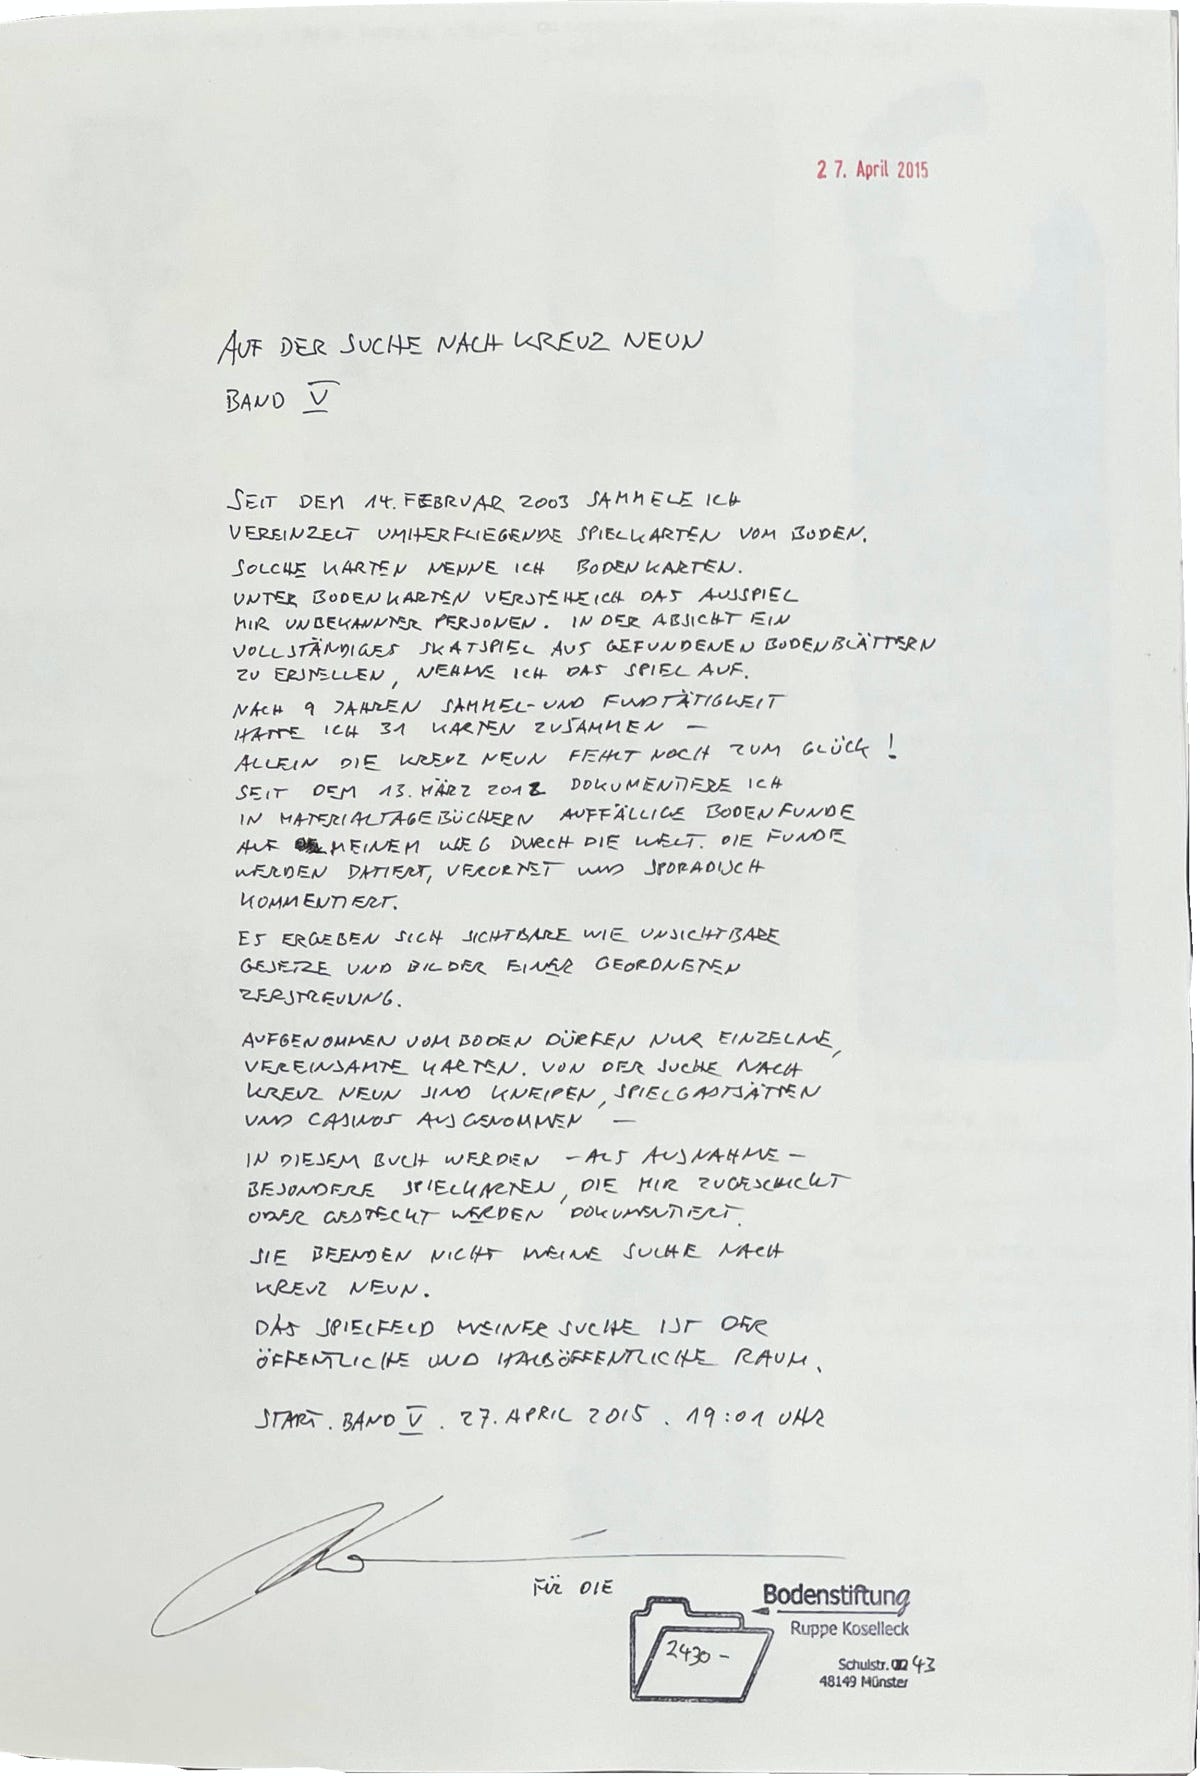 27. April 2015
AUF DER SUCHE NACH KREUZ NEUN
BAND V
SEIT DEM 14. FEBRUAR 2003 SAMMELE ICH
VEREINZELT UMHERFLIEGENDE SPIELKARTEN VOM BODEN.
SOLCHE KARTEN NENNE ICH BODENKARTEN.
UNTER BODENKARTEN VERSTEHE ICH DAS AUSSPIEL
MIR UNBEKANNTER PERSONEN. IN DER ABSICHT EIN
VOLLSTÄNDIGES SKATSPIEL AUS GEFUNDENEN BODENBLÄTTERN
ZU ERSTELLEN, NEHME ICH DAS SPIEL AUF.
NACH 9 JAHREN SAMMEL- UND FUNDTÄTIGKEIT
HATTE ICH 31 KARTEN ZUSAMMEN –
ALLEIN DIE KREUZ NEUN FEHLT NOCH ZUM GLÜCK!
SEIT DEM 13. MÄRZ 2012 DOKUMENTIERE ICH
IN MATERIALTAGEBÜCHERN AUFFÄLLIGE BODENFUNDE
AUF MEINEM WEG DURCH DIE WELT. DIE FUNDE
WERDEN DATIERT, VERORTET UND SPORADISCH
KOMMENTIERT.
ES ERGEBEN SICH SICHTBARE WIE UNSICHTBARE
GESETZE UND BILDER EINER GEORDNETEN
ZERSTREUUNG.
AUFGENOMMEN VOM BODEN DÜRFEN NUR EINZELNE,
VEREINSAMTE KARTEN. VON DER SUCHE NACH
KREUZ NEUN SIND KNEIPEN, SPIELGASTSÄTTEN
UND CASINOS AUSGENOMMEN –
IN DIESEM BUCH WERDEN – ALS AUSNAHME –
BESONDERE SPIELKARTEN, DIE MIR ZUGESCHICKT
ODER GESTECKT WERDEN DOKUMENTIERT.
SIE BEENDEN NICHT MEINE SUCHE NACH
KREUZ NEUN.
DAS SPIELFELD MEINER SUCHE IST DER
ÖFFENTLICHE UND HALBÖFFENTLICHE RAUM.
START. BAND V. 27. APRIL 2015. 19:01 UHR
FÜR DIE
Bodenstiftung
Ruppe Koselleck
2430 –
Schulstr. 43
48149 Münster